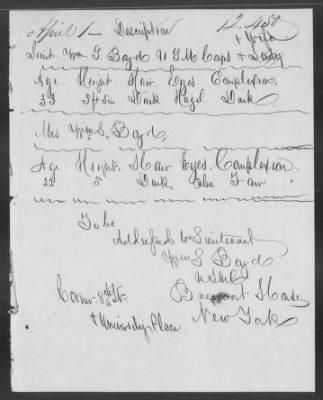 April 1 Description 12,480
Lieut. Wm S. Boyd U S M Corps + Lady + Child
Age Height Hair Eyes. Complexion.
33 5ft 5in Dark Hazel Dark
Mrs Wm S. Boyd,
Age Height. Hair Eyes. Complexion.
22 5 Dark, Fair
To be
Addressed to Lieutenant
Wm S. Boyd
U S M C
Corner 8th St. House
+ University Place. New York